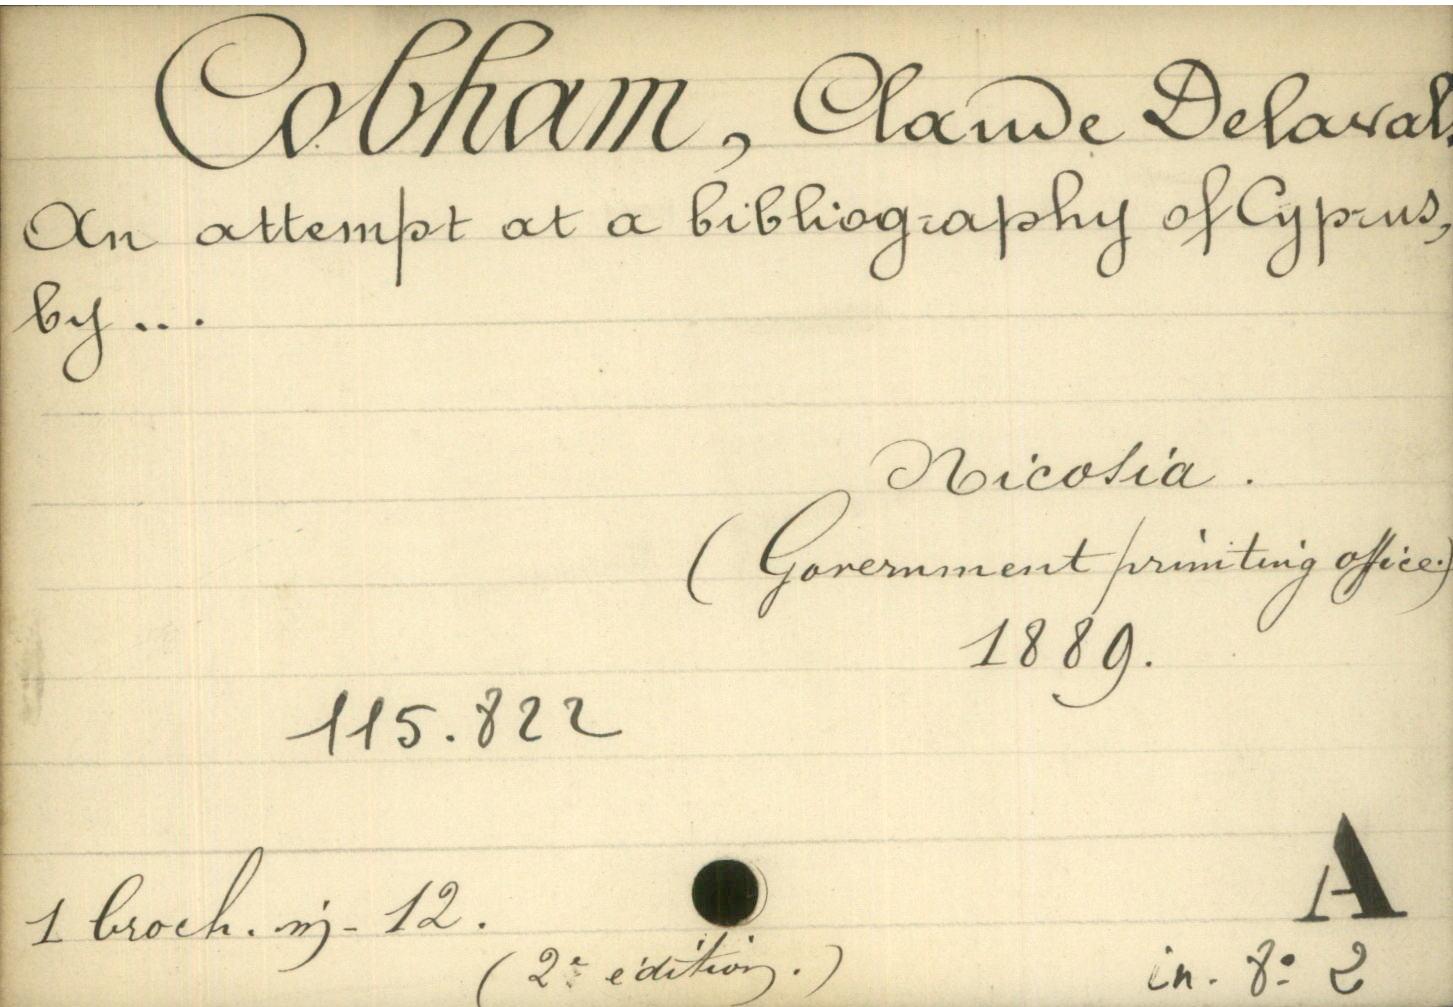 Cobham, Claude Delaval.
An attempt at a bibliography of Cyprus,
by ...
Nicosia.
(Government printing office.)
1889.
115.822
A
1 broch. in-12.
(2e édition.)
in-8º 2